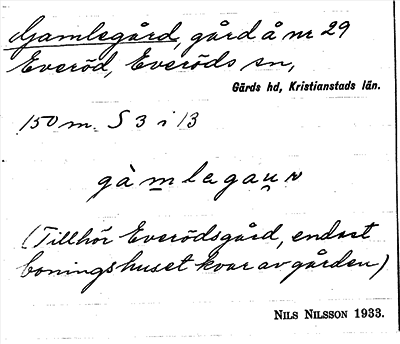 Gamlegård, gård å nr 29
Everöd, Everöds sn,
Gärds hd, Kristianstads län.
150 m. S 3 i 13
gàmlegaun
(Tillhör Everödsgård, endast
boningshuset kvar av gården)
NILS NILSSON 1933.